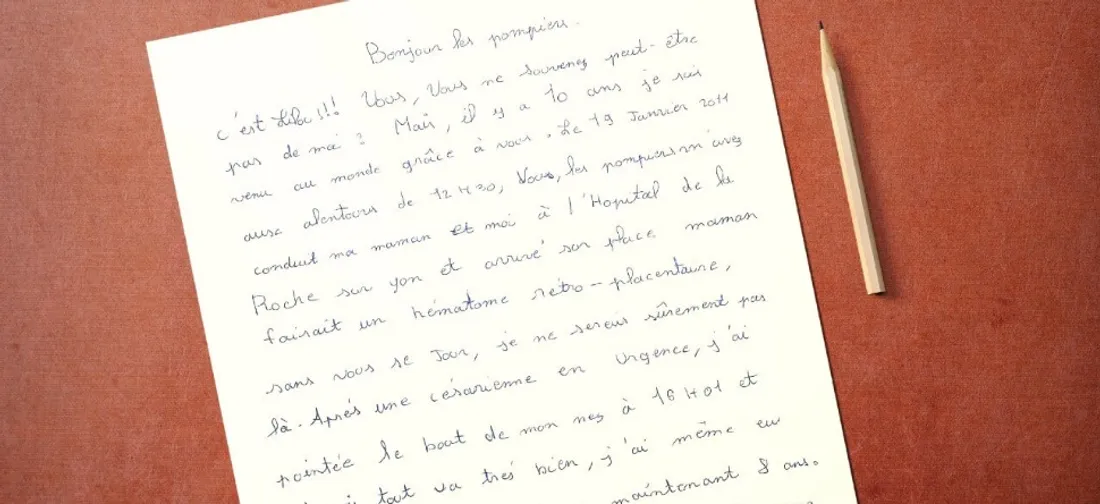 Bonjour les pompiers.
c'est Lilou !!! Vous, Vous ne souvenez peut-être
pas de moi ? Mais, il y a 10 ans je suis
venu au monde grâce à vous. Le 19 Janvier 2011
aux alentours de 12H30, Vous, les pompiers m'avez
conduit ma maman et moi à l'Hopital de la
Roche sur yon et arrivé sur place maman
faisait un hématome rétro-placentaire,
sans vous se Jour, je ne serais sûrement pas
là. Après une césarienne en Urgence, j'ai
pointée le bout de mon nez à 16H01 et
tout va très bien, j'ai même eu
maintenant 8 ans.